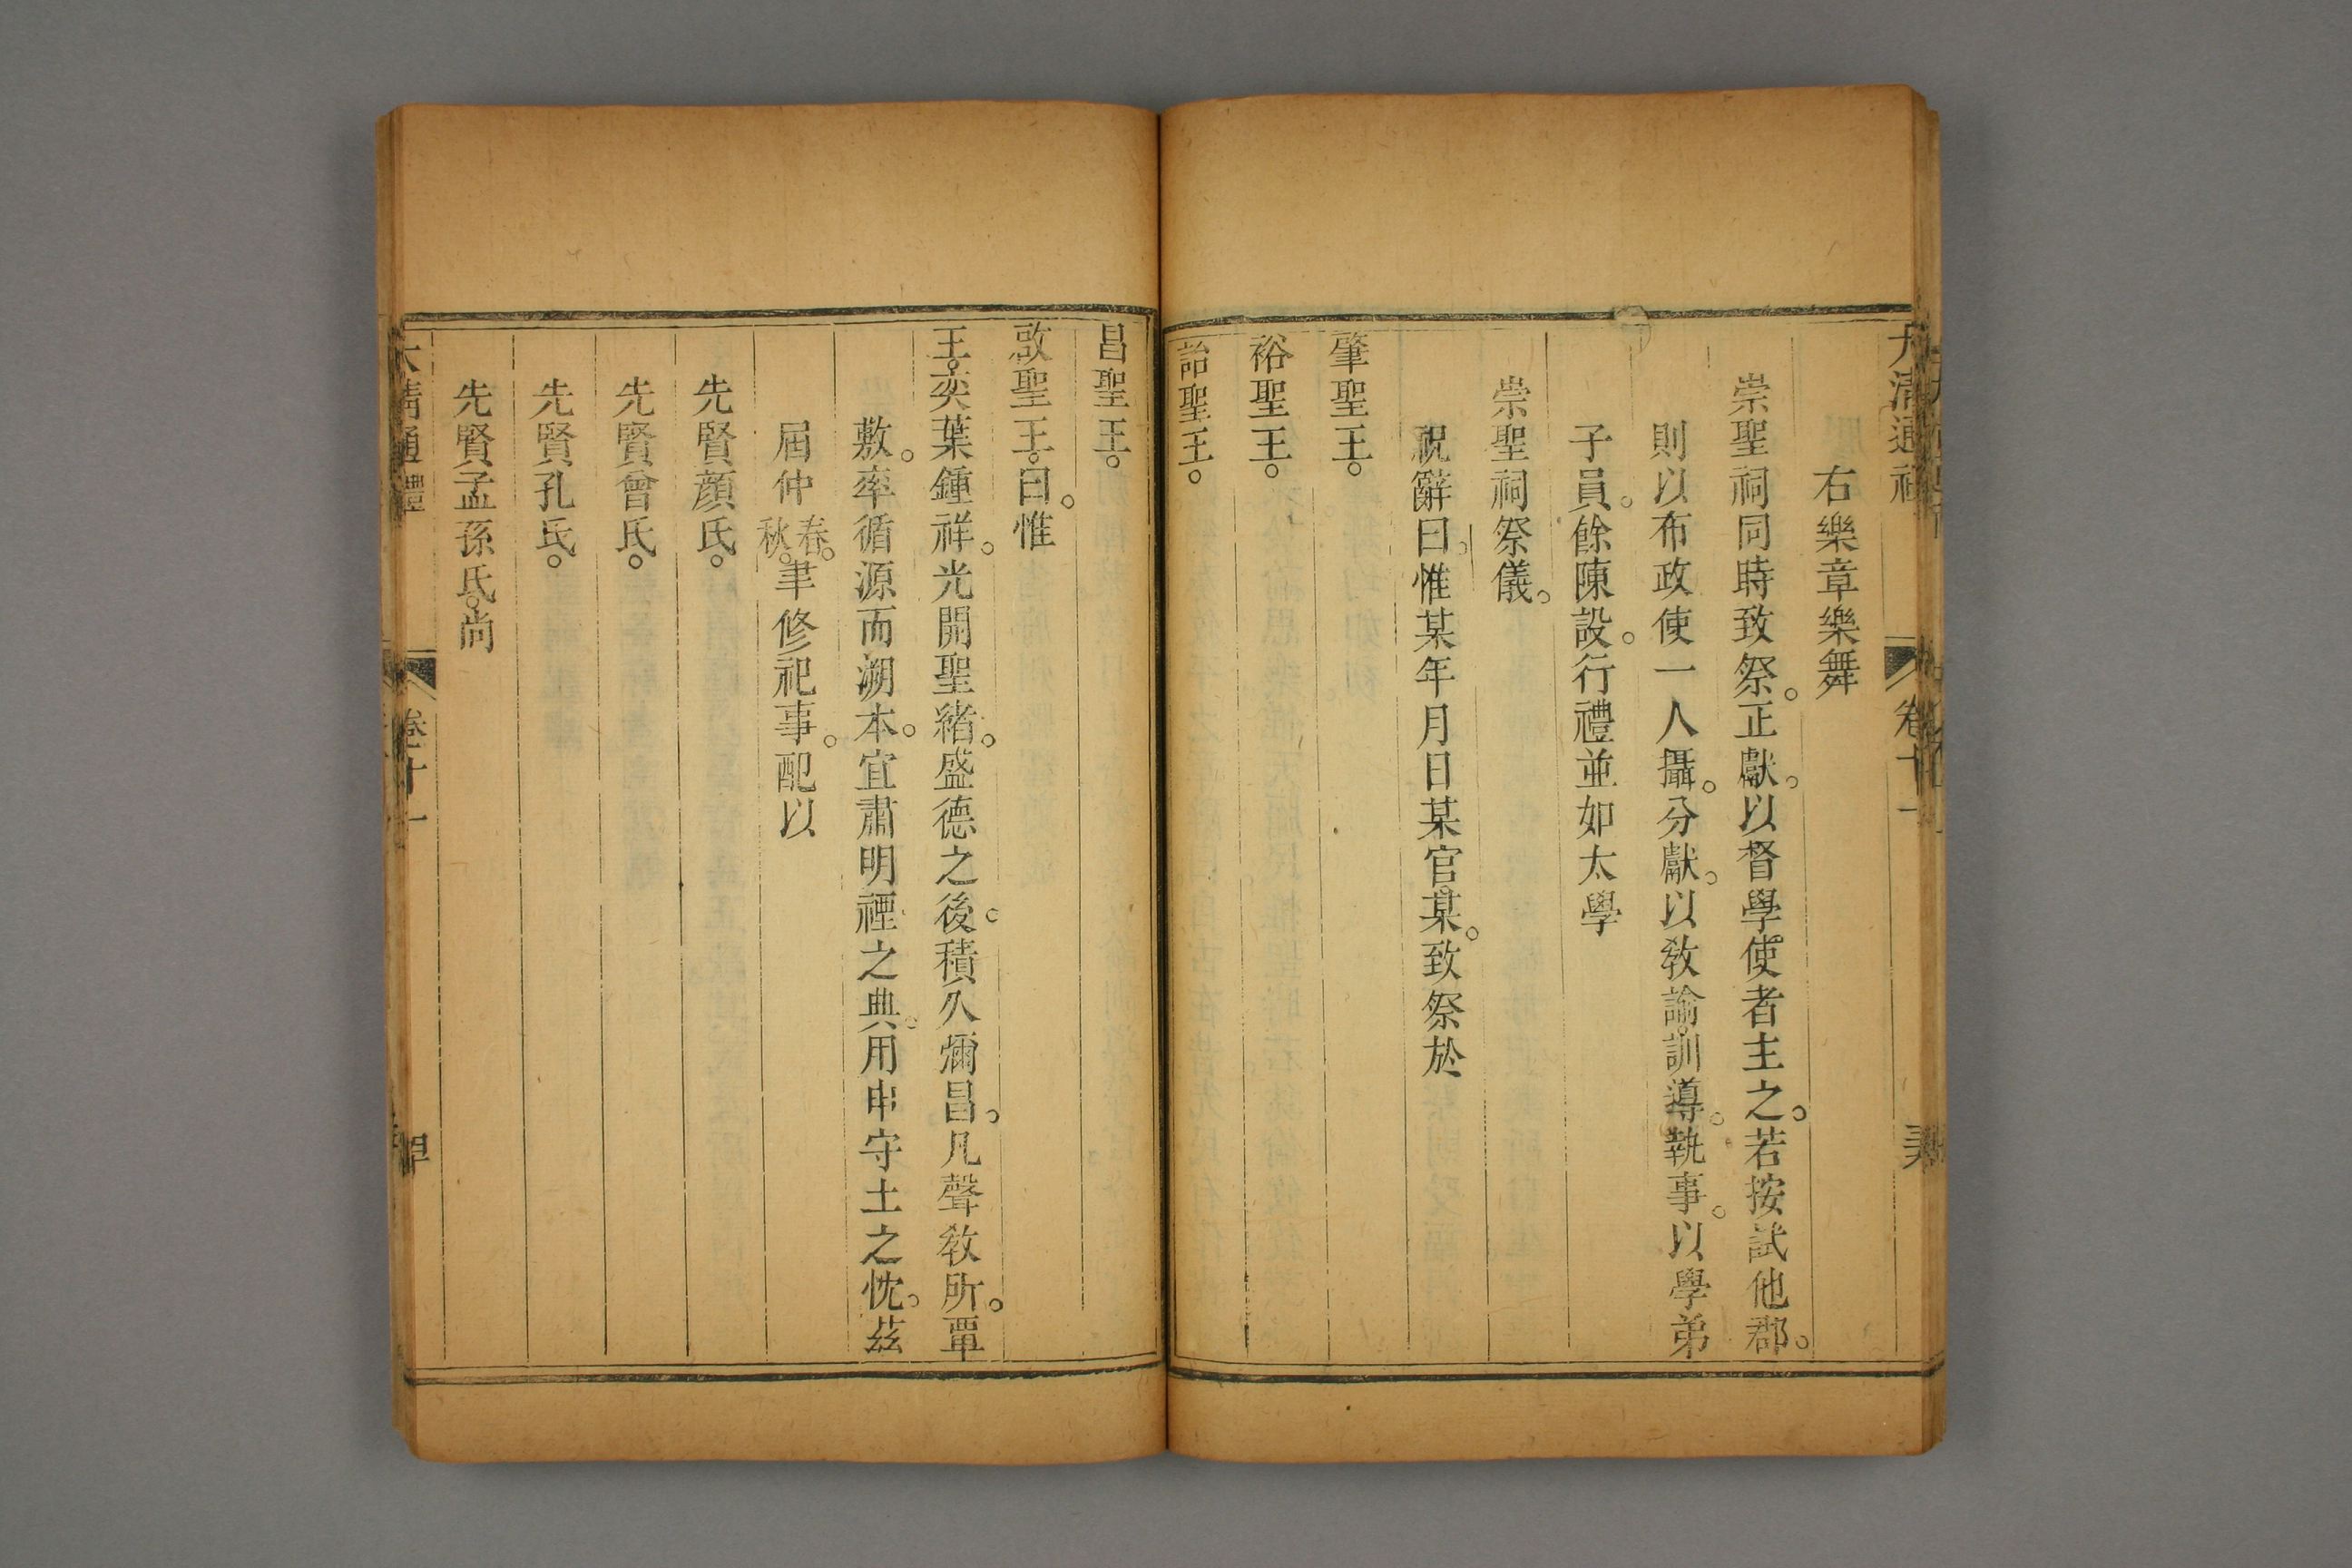 大清通禮 卷十一
右樂章樂舞
崇聖祠同時致祭。正獻。以督學使者主之。若按試他郡。
則以布政使一人攝。分獻。以敎諭。訓導。執事。以學弟
子員。餘陳設。行禮並如太學
崇聖祠祭儀。
祝辭曰。惟某年月日某官。某。致祭於
肇聖王。
裕聖王。
詒聖王。
昌聖王。
啟聖王。曰。惟
王。奕葉鍾祥。光開聖緒。盛德之後。積久彌昌。凡聲敎所。覃
敷。率循源而溯本。宜肅明禋之典。用申守土之忱。茲
屆仲春。秋。聿修祀事。配以
先賢顏氏。
先賢曾氏。
先賢孔氏。
先賢孟孫氏。尚
大清通禮 卷十一